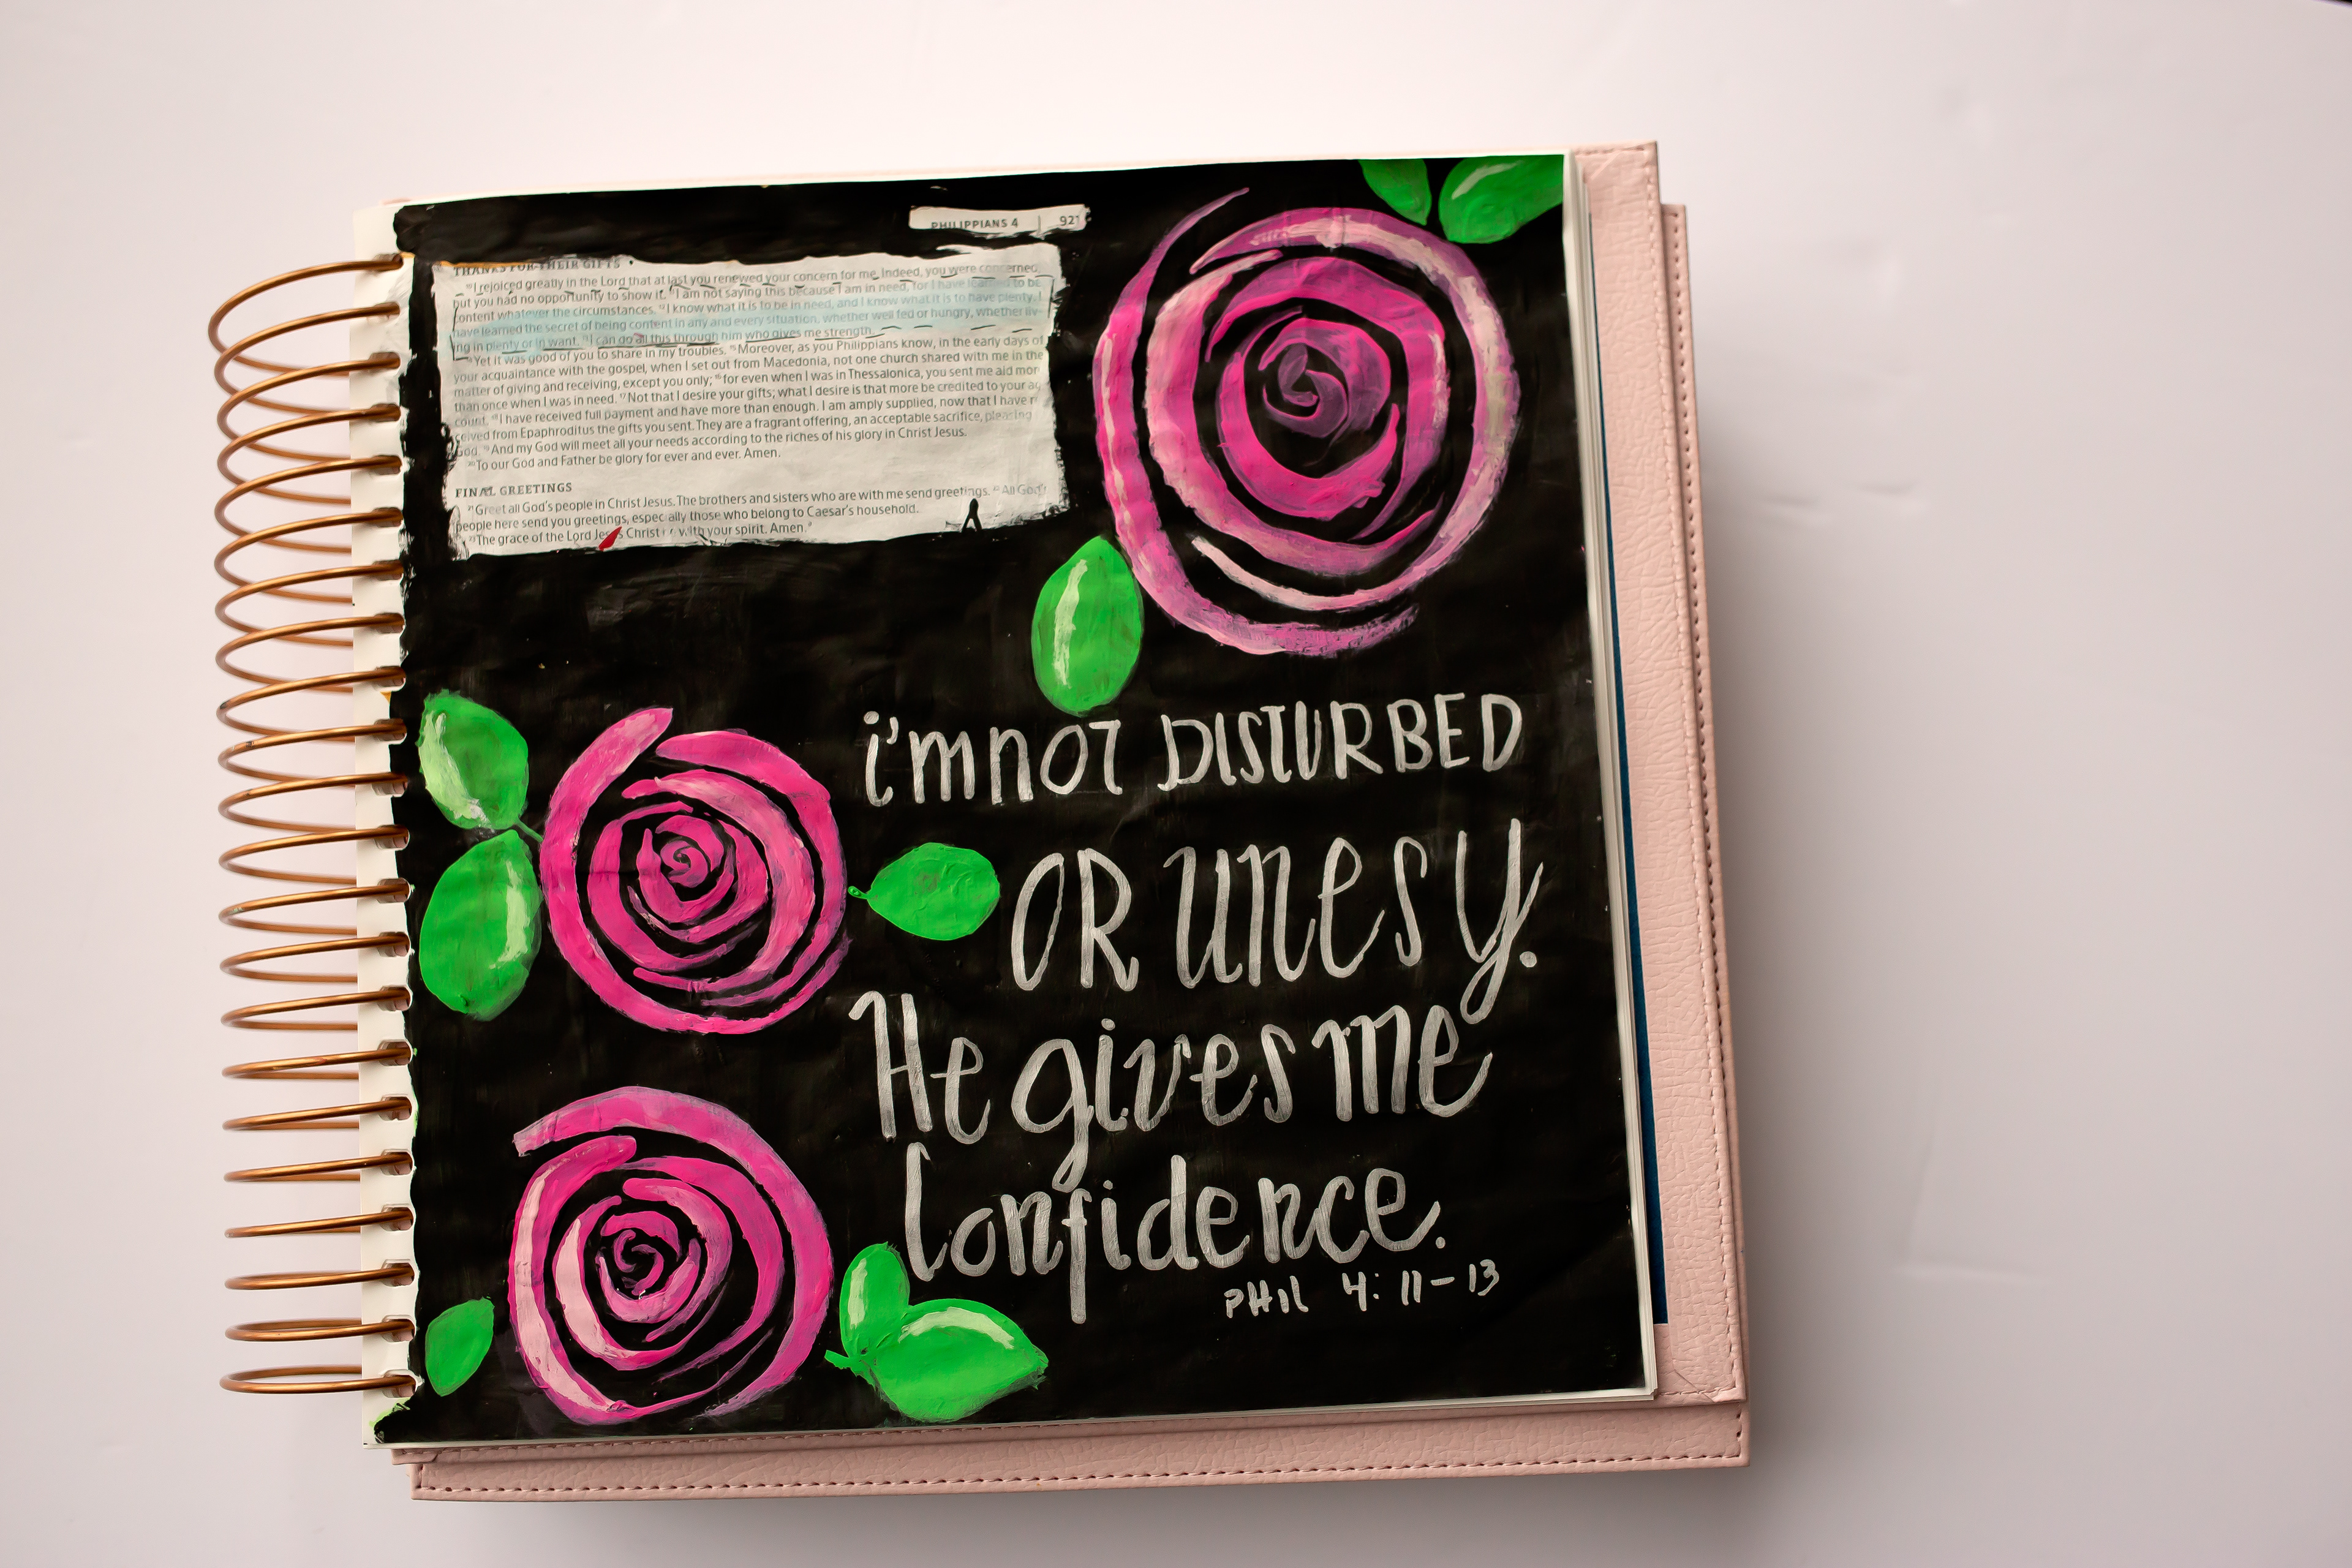 PHILIPPIANS 4 | 921
THANKS FOR THEIR GIFTS
10 I rejoiced greatly in the Lord that at last you renewed your concern for me. Indeed, you were concerned,
but you had no opportunity to show it. 11 I am not saying this because I am in need, for I have learned to be
content whatever the circumstances. 12 I know what it is to be in need, and I know what it is to have plenty. I
have learned the secret of being content in any and every situation, whether well fed or hungry, whether liv-
ing in plenty or in want. 13 I can do all this through him who gives me strength.
14 Yet it was good of you to share in my troubles. 15 Moreover, as you Philippians know, in the early days of
your acquaintance with the gospel, when I set out from Macedonia, not one church shared with me in the
matter of giving and receiving, except you only; 16 for even when I was in Thessalonica, you sent me aid mor
than once when I was in need. 17 Not that I desire your gifts; what I desire is that more be credited to your ac
count. 18 I have received full payment and have more than enough. I am amply supplied, now that I have r
ceived from Epaphroditus the gifts you sent. They are a fragrant offering, an acceptable sacrifice, pleasing
God. 19 And my God will meet all your needs according to the riches of his glory in Christ Jesus.
20 To our God and Father be glory for ever and ever. Amen.
FINAL GREETINGS
21 Greet all God's people in Christ Jesus. The brothers and sisters who are with me send greetings. 22 All God's
people here send you greetings, especially those who belong to Caesar's household.
23 The grace of the Lord Jesus Christ with your spirit. Amen.
i'm not DISTURBED
OR unesy.
He gives me
Confidence.
PHIL 4: 11-13